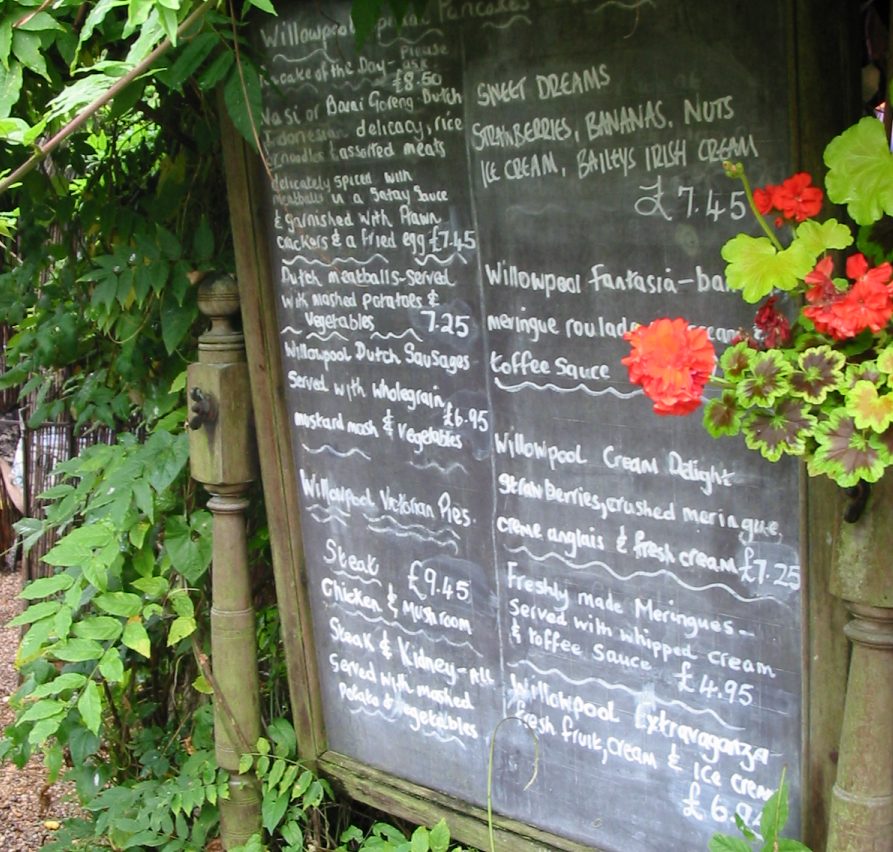 Willowpool Special Pancakes
Pancake of the Day - Please
ask £8.50
Nasi or Bami Goreng - Dutch
Indonesian delicacy, rice
or noodles & assorted meats
delicately spiced with
meatballs in a Satay Sauce
& garnished with Prawn
crackers & a fried egg £7.45
Dutch meatballs - served
with mashed potatoes &
Vegetables 7.25
Willowpool Dutch Sausages
Served with wholegrain
mustard mash & Vegetables £6.95
Willowpool Victorian Pies.
Steak £9.45
Chicken & Mushroom
Steak & Kidney - All
Served with mashed
Potato & Vegetables
SWEET DREAMS
STRAWBERRIES, BANANAS, NUTS
ICE CREAM, BAILEYS IRISH CREAM
£7.45
Willowpool Fantasia -
meringue roulade
toffee Sauce
Willowpool Cream Delight
Strawberries, crushed meringue,
creme anglais & fresh cream £7.25
Freshly made Meringues -
served with whipped cream
& toffee Sauce £4.95
Willowpool Extravaganza -
fresh fruit, cream & Ice cream